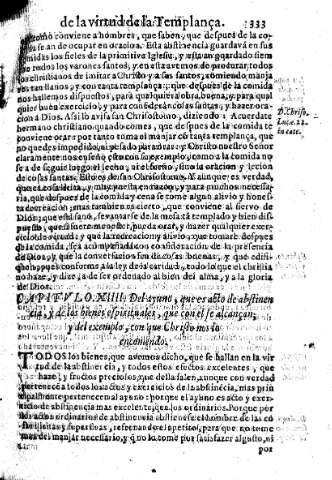 de la virtud de la Templança. 1333
como conviene a hombres, que saben, que despues de la co-
se an de ocupar en oracion. Esta abstinencia guardavan en sus
comidas los fieles de la primitiva Iglesia, y esta an guardado siem
todos los varones santos, y en esta avemos de procurar todos
los christianos de imitar a Christo y a sus santos, comiendo manja
res y con tanta templança: que despues de la comida
nos hallemos dispuestos, para qualquiera obra buena, y para qual
quier buen exercicio, y para considerar cosas santas, y hazer ora-
cion a Dios. Assi lo avisa san Chrisostomo, diziendo: Acuerdate
hermano christiano quando comes, que despues de la comida te
conviene orar: por tanto toma el manjar con tanta templança, que
no quedes impedido, ni pesado para orar: y Christo nuestro Señor
claramente nos enseño esto con su exemplo, como a la comida no
se a de seguir luego el lecho, ni el sueño, sino la oracion y lecion
de cosas santas. Esto es de Chrisostomo. Y aunque es verdad,
que es cosa licita, y muy puesta en razon, y para muchos necessa-
ria, que despues de la comida y cena se tome algun alivio y hones-
ta recreacion: mas tambien es cierto, que conviene al siervo de
Dios; que esto sano, levantarse de la mesa tā templado y bien dis-
puesto, que si fuere menester, pueda orar, y hazer qualquier exer-
cicio de virtud: y que la recreacion y alivio, que tomare despues
de la comida, sea acompañada con consideracion de la presencia
de Dios, y que la conversacion sea de cosas buenas, y que edifi-
quen, pues conforme a la ley de la caridad, todo lo que el christia
no haze, y dize, a de ser ordenado al bien del alma, y a la gloria
de Dios.
D. Chriso.
Luc. c. 22.
in cate.
CAPITVLO. XIIII. Del ayuno, que es acto de abstinen
cia, y de los bienes espirituales, que con el se alcançan,
y del exemplo, con que Christo nos lo
encomendo.
TODOS los bienes, que avemos dicho, que se hallan en la vir
tud de la abstinencia, y todos estos efectos excelentes, que
haze, y fructos preciosos, que della salen, aunque con verdad
pertenecen a todos los actos y exercicios de la abstinencia, mas prin
cipalmente pertenecen al ayuno: porque el ayuno es acto y exer-
cicio de abstinencia mas excelente, que los ordinarios. Porque por
los actos ordinarios de abstinencia
y superfluas, refernando el apetito, para que no tome
mas del manjar necessario, y q̃ no lo tome por satisfazer al gusto, si
por